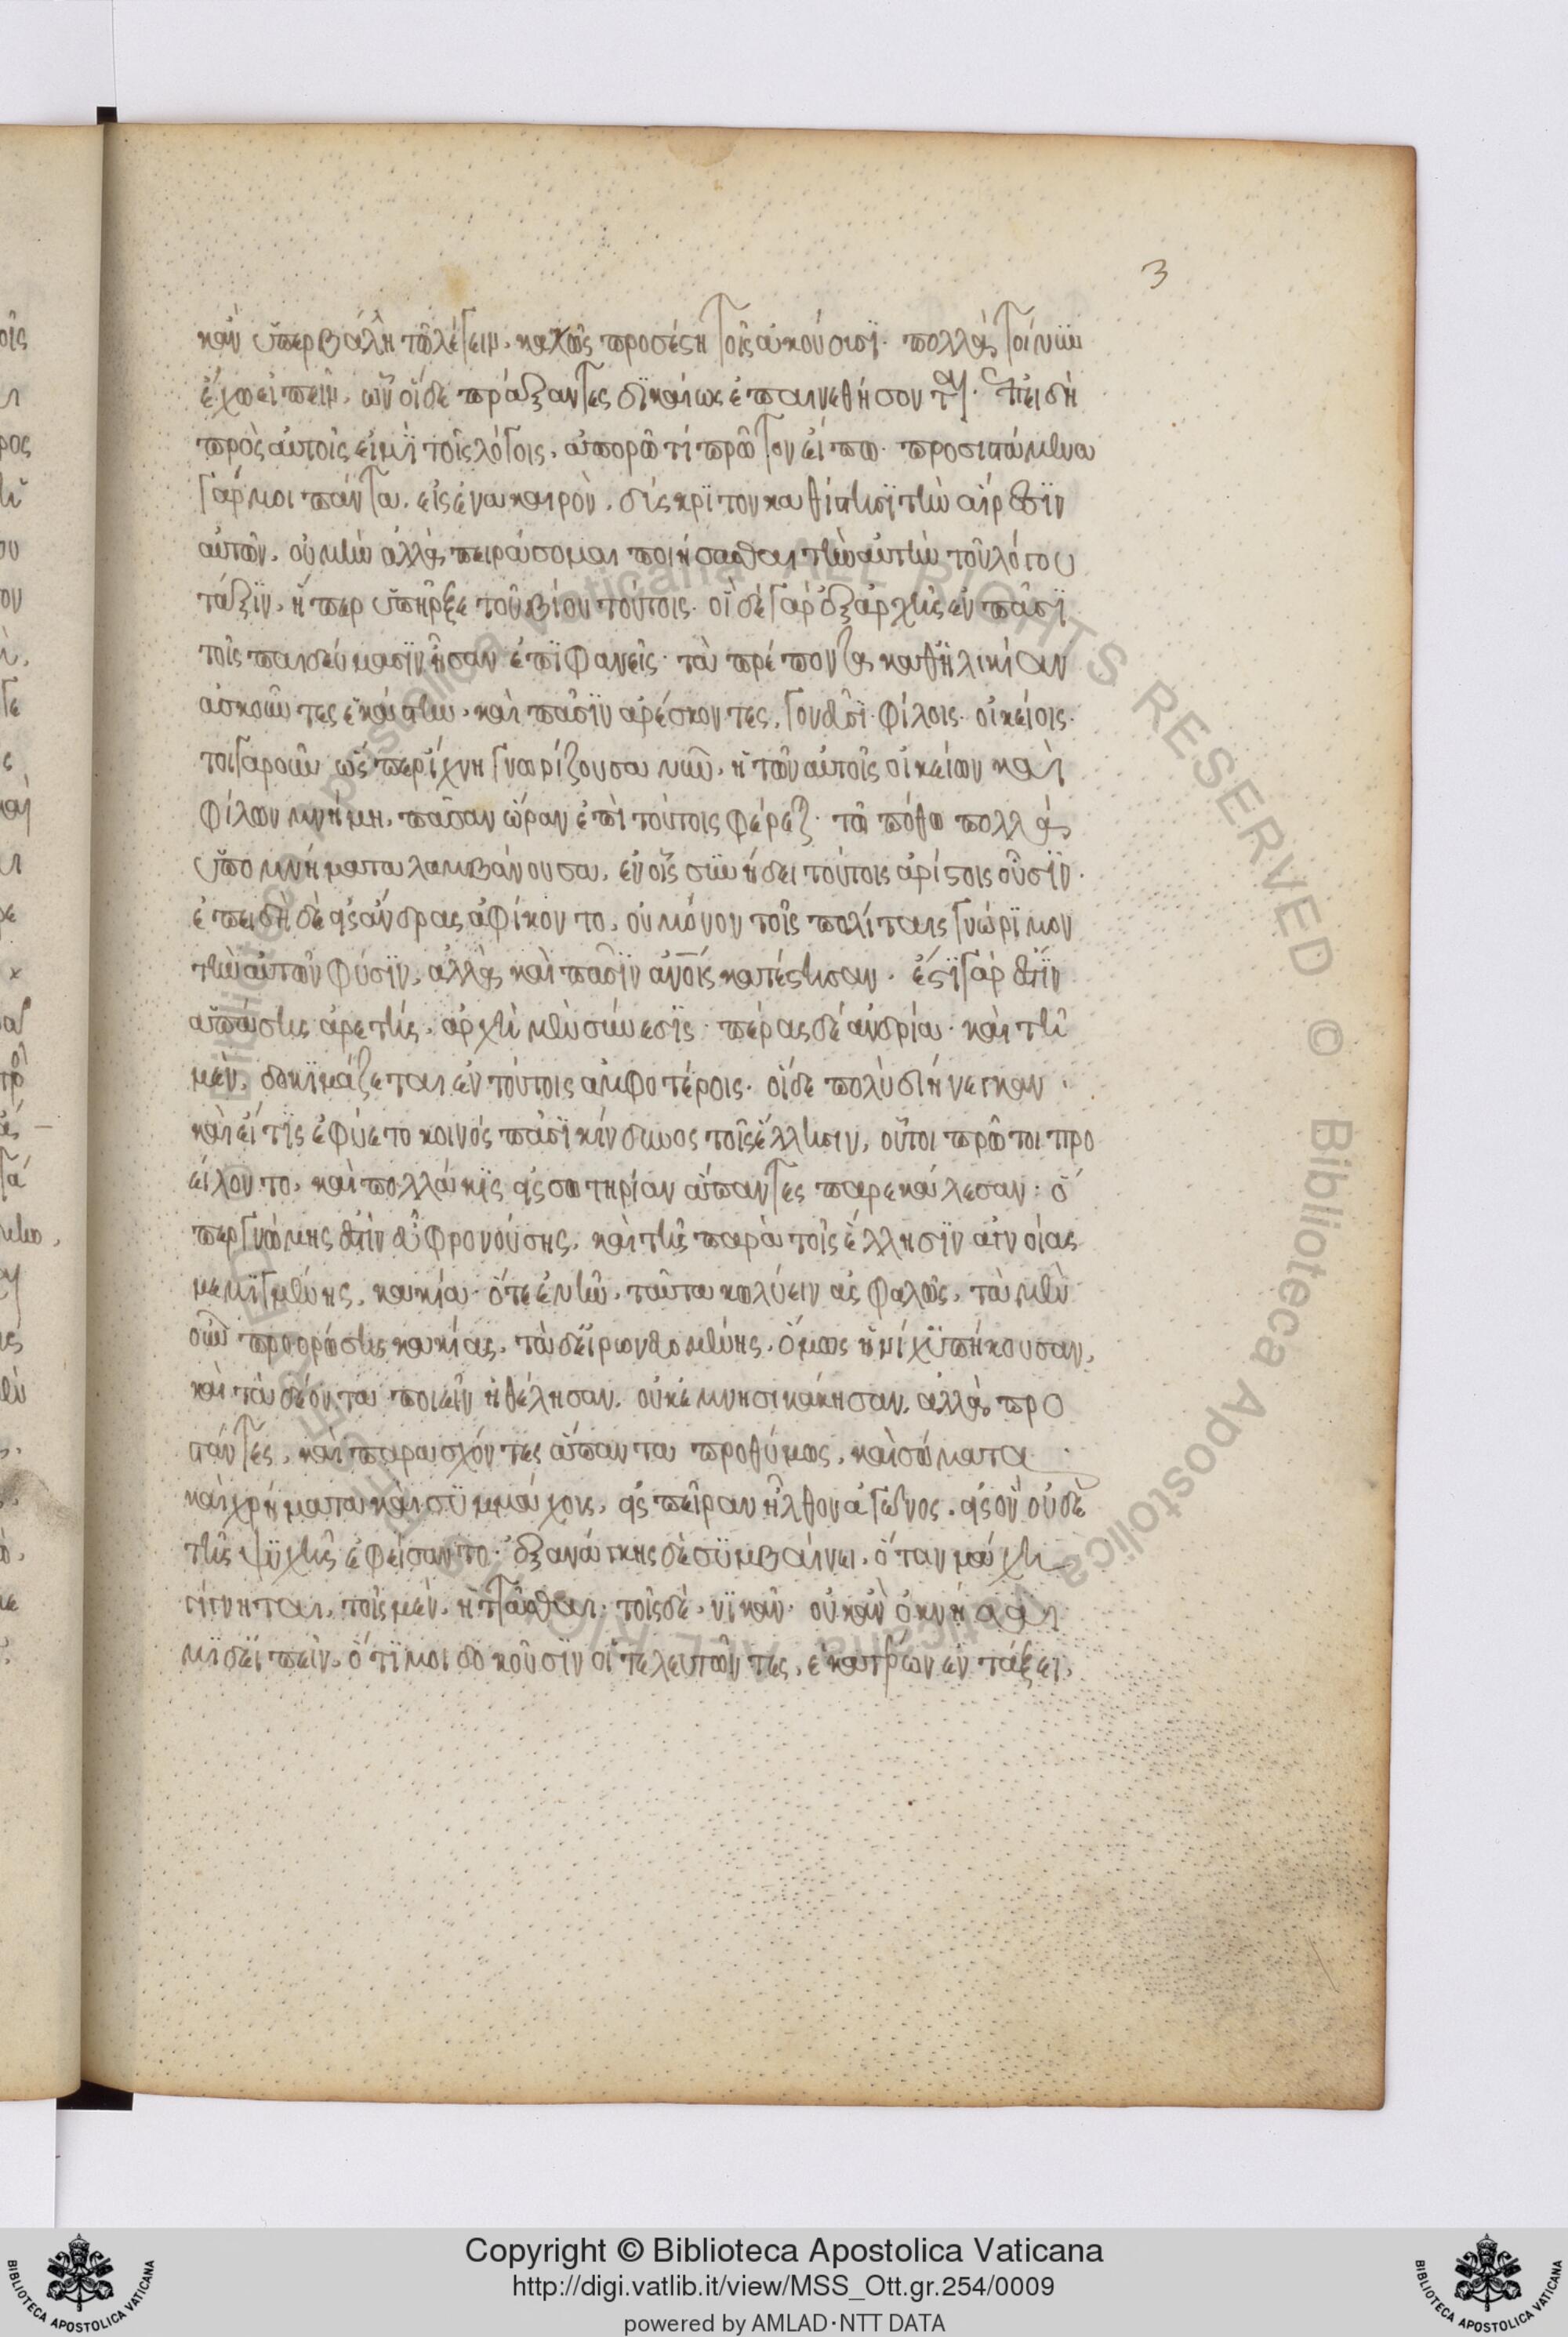 3
κἂν ὑπερβάλῃ τῷ λέγειν, καλῶς προσέστη τοῖς ἀκούουσι. πολλὰ τοίνυν
ἔχω εἰπεῖν, ὧν οἵδε πράξαντες δικαίως ἐπαινεθήσονται. ἐπειδὴ
πρὸς αὐτοῖς εἰμὶ τοῖς λόγοις, ἀπορῶ τί πρῶτον εἴπω. προσιστάμενα
γάρ μοι πάντα, εἰς ἕνα καιρὸν, δύσκριτον καθίστησι τὴν αἵρεσιν
αὐτῶν, οὐ μὴν ἀλλὰ πειράσομαι ποιήσασθαι τὴν αὐτὴν τοῦ λόγου
τάξιν, ἥπερ ὑπῆρξε τοῦ βίου τούτοις. οἵδε γὰρ ἐξ ἀρχῆς ἐν πᾶσι
τοῖς παιδεύμασιν ἦσαν ἐπιφανεῖς. τὰ πρέποντα καθ' ἡλικίαν
ἀσκοῦντες ἑκάστην, καὶ πᾶσιν ἀρέσκοντες, γονεῦσι. φίλοις. οἰκείοις.
τοιγαροῦν ὥσπερ ἴχνη γνωρίζουσα νῦν, ἡ τῶν αὐτοῖς οἰκείων καὶ
φίλων μνήμη, πᾶσαν ὥραν ἐπὶ τούτοις φέρεται τῷ πόθῳ πολλὰ
ὑπομνήματα λαμβάνουσα, ἐν οἷς συνῄδει τούτοις ἀρίστοις οὖσιν.
ἐπειδὴ δὲ εἰς ἄνδρας ἀφίκοντο, οὐ μόνον τοῖς πολίταις γνώριμον
τὴν αὐτῶν φύσιν, ἀλλὰ καὶ πᾶσιν ἀνοις κατέστησαν. ἔστι γὰρ ἔστιν
ἁπάσης ἀρετῆς, ἀρχὴ μὲν σύνεσις. πέρας δὲ ἀνδρία. καὶ τῇ
μὲν, δοκιμάζεται ἐν τούτοις ἀμφοτέροις. οἵδε πολὺ διήνεγκαν.
καὶ εἴ τις ἐφύετο κοινὸς πᾶσι κίνδυνος τοῖς ἕλλησιν, οὗτοι πρῶτοι προ
είλοντο, καὶ πολλάκις εἰς σωτηρίαν ἅπαντες παρεκάλεσαν. ὅ
περ γνώμης ἐστὶν εὖ φρονούσης, καὶ τῆς παρὰ τοῖς ἕλλησιν ἀγνοίας
μεμιγμένης, κακίᾳ. ὅτε ἐνῆν, ταῦτα κωλύειν ἀσφαλῶς, τὰ μὲν
οὐ προορώσης κακίας, τὰ δ' εἰρωνευομένης. ὅμως ἡνίχ' ὑπήκουσαν,
καὶ τὰ δέοντα ποιεῖν ἠθέλησαν, οὐκ ἐμνησικάκησαν, ἀλλὰ προ
στάντες, καὶ παρασχόντες ἅπαντα προθύμως, καὶ σώματα
καὶ χρήματα καὶ συμμάχους, εἰς πεῖραν ἦλθον ἀγῶνος, εἰς ὃν οὐδὲ
τῆς ψυχῆς ἐφείσαντο. ἐξ ἀνάγκης δὲ συμβαίνει, ὅταν μάχη
γίγνηται, τοῖς μὲν, ἡττᾶσθαι. τοῖς δὲ, νικᾶν. οὐκ ἂν ὀκνήσαι
μι δ' εἰπεῖν, ὅτι μοι δοκοῦσιν οἱ τελευτῶντες, ἑκατέρων ἐν τάξει,
Copyright © Biblioteca Apostolica Vaticana
http://digi.vatlib.it/view/MSS_Ott.gr.254/0009
powered by AMLAD·NTT DATA